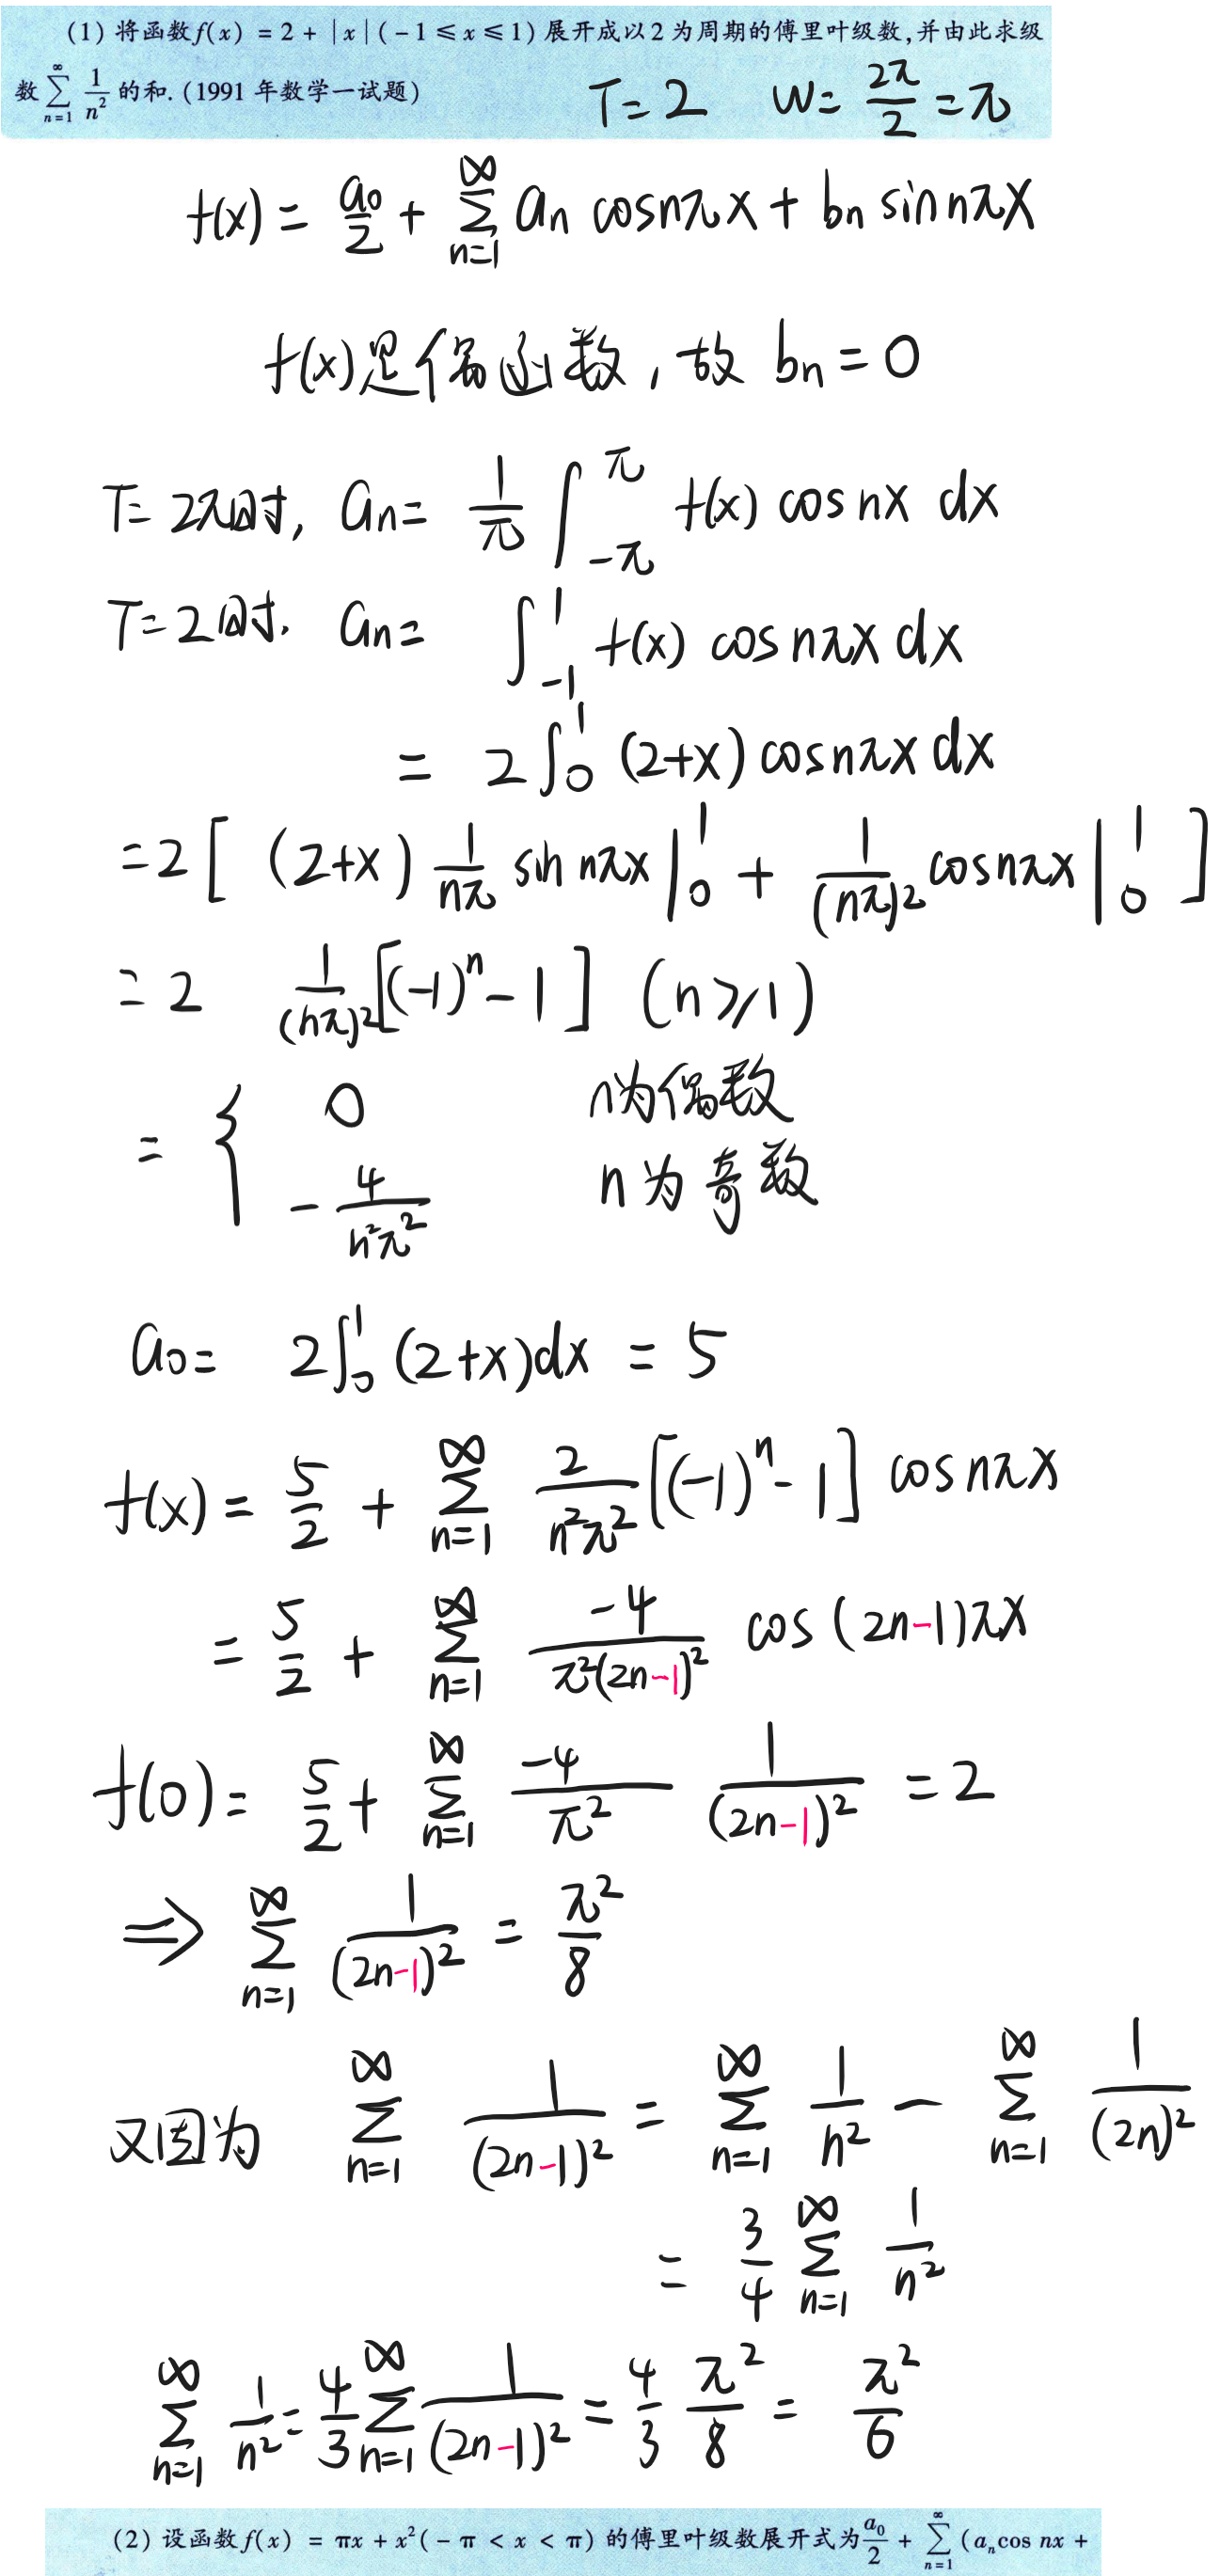 (1) 将函数f(x) = 2 + |x| (-1 ≤ x ≤ 1) 展开成以2为周期的傅里叶级数,并由此求级
数 ∑_{n=1}^{∞} 1/n² 的和. (1991 年数学一试题) T=2 W= 2π/2 =π
f(x) = a₀/2 + ∑_{n=1}^{∞} aₙ cosnπx + bₙ sin nπx
f(x)是偶函数, 故 bₙ = 0
T= 2π时, aₙ= 1/π ∫_{-π}^{π} f(x) cos nx dx
T=2时. aₙ= ∫_{-1}^{1} f(x) cos nπx dx
= 2∫_0^1 (2+x) cosnπx dx
=2[ (2+x) 1/nπ sin nπx |_0^1 + 1/(nπ)² cosnπx |_0^1 ]
= 2 1/(nπ)² [(-1)ⁿ - 1] (n≥1)
= { 0 n为偶数
-4/n²π² n为奇数
a₀= 2∫_0^1 (2+x)dx = 5
f(x) = 5/2 + ∑_{n=1}^{∞} 2/n²π² [(-1)ⁿ - 1] cosnπx
= 5/2 + ∑_{n=1}^{∞} -4/π²(2n-1)² cos (2n-1)πx
f(0) = 5/2 + ∑_{n=1}^{∞} -4/π² 1/(2n-1)² = 2
⇒ ∑_{n=1}^{∞} 1/(2n-1)² = π²/8
又因为 ∑_{n=1}^{∞} 1/(2n-1)² = ∑_{n=1}^{∞} 1/n² - ∑_{n=1}^{∞} 1/(2n)²
= 3/4 ∑_{n=1}^{∞} 1/n²
∑_{n=1}^{∞} 1/n² = 4/3 ∑_{n=1}^{∞} 1/(2n-1)² = 4/3 π²/8 = π²/6
(2) 设函数f(x) = πx + x² (-π < x < π) 的傅里叶级数展开式为 a₀/2 + ∑_{n=1}^{∞} (aₙcos nx +